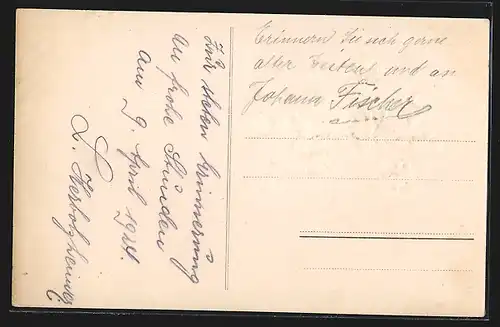 Zur steten Erinnerung
an frohe Stunden
am 9. April 1924.
Erinnern Sie sich gerne
alter Zeiten und an
Johann Fischer